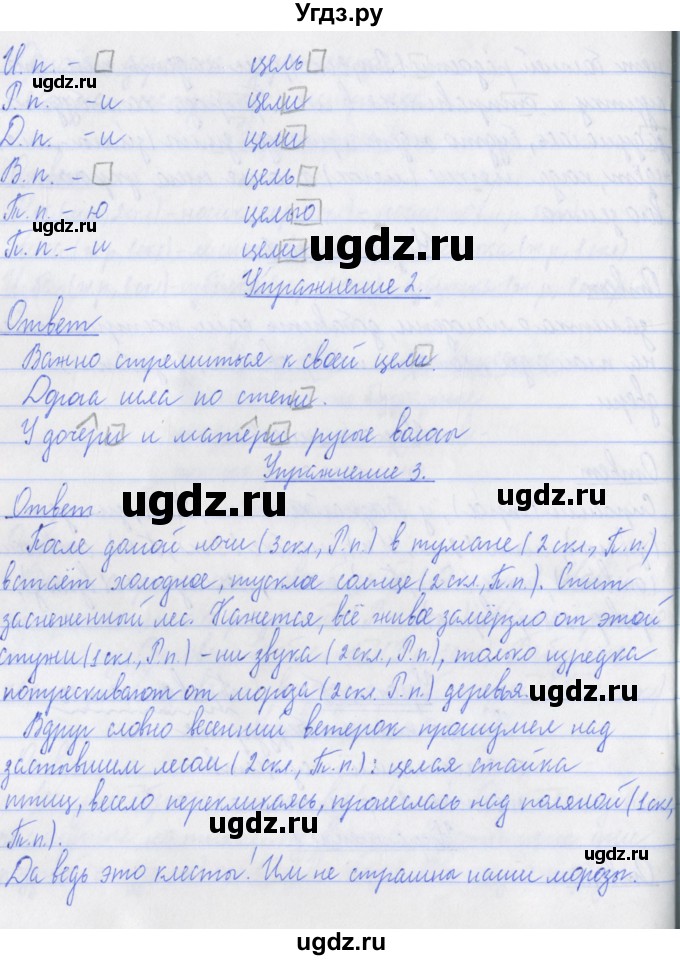 Угдз.ру
И. п. - цель
ugdz.ru
Р. п. - и цели
Д. п. - и цели
В. п. - цель
Т. п. - ю целью
ugdz.ru
П. п. - и цели
ugdz.ru
Упражнение 2.
Ответ
Важно стремиться к своей цели.
Дорога шла по степи.
У дочери и матери русые волосы
Упражнение 3.
ugdz.ru
ugdz.ru
Ответ
После долгой ночи (3 скл., Р. п.) в тумане (2 скл., П. п.)
встаёт холодное, тусклое солнце (2 скл., И. п.). Спит
заснеженный лес. Кажется, всё живое замёрзло от этой
стужи (1 скл., Р. п.) - ни звука (2 скл., Р. п.), только изредка
потрескивают от мороза (2 скл. Р. п.) деревья.
ugdz.ru
Вдруг словно весенний ветерок прошумел над
застывшим лесом (2 скл., Т. п.): целая стайка
птиц, весело перекликаясь, пронеслась над поляной (1 скл,
Т. п.).
ugdz.ru
ugdz.ru
Да ведь это клесты! Им не страшны наши морозы.
ugdz.ru